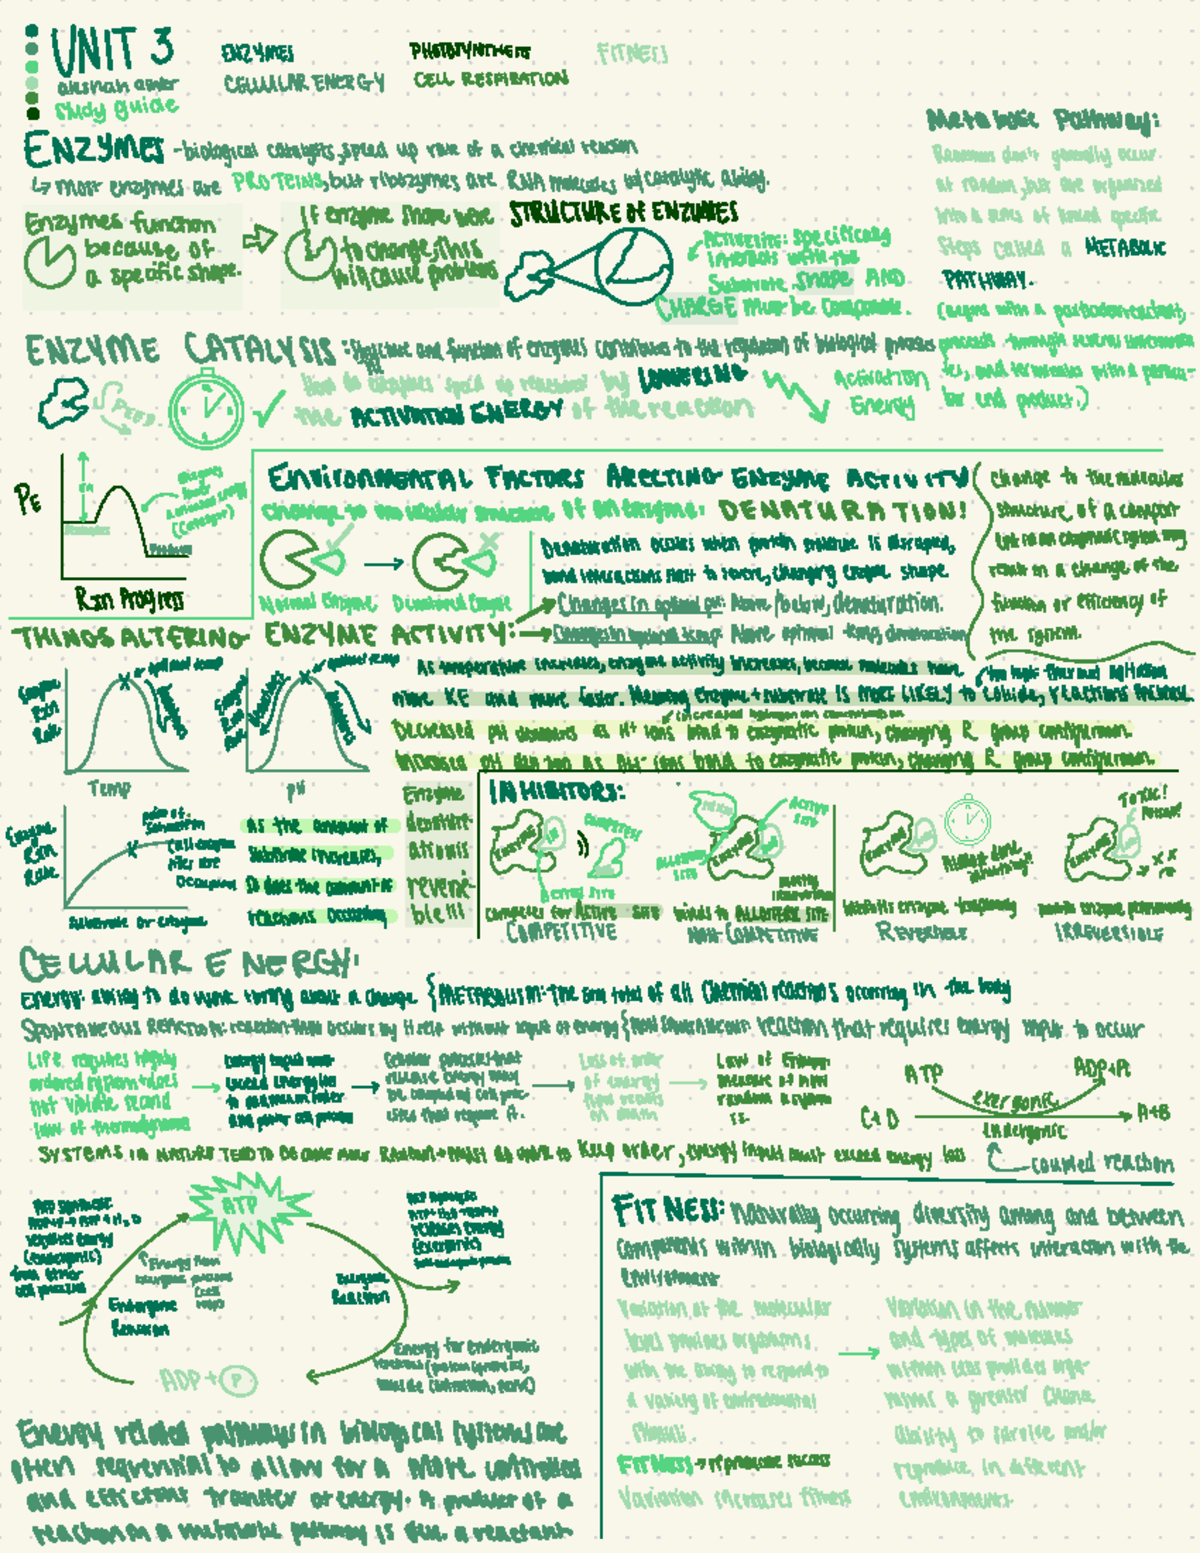 UNIT 3
study guide
ENZYMES
CELLULAR ENERGY
PHOTOSYNTHESIS
CELL RESPIRATION
FITNESS
ENZYMES - biological catalysts, speed up rate of a chemical reaction
↳ most enzymes are PROTEINS, but ribozymes are RNA molecules w/ catalytic ability.
Enzymes function
because of
a specific shape.
If enzyme shape were
to change, this
will cause problems
STRUCTURE OF ENZYMES
ACTIVE SITE: specifically
interacts with the
substrate. shape AND
CHARGE must be compatible.
Metabolic Pathway:
Reactions don't generally occur
at random, but are organized
into a series of linked specific
steps called a METABOLIC
PATHWAY.
(begins with a particular reactant,
proceeds through several intermedia-
tes, and terminates with a particu-
lar end product.)
ENZYME CATALYSIS: Structure and function of enzymes contributes to the regulation of biological processes
How do enzymes speed up reactions? by LOWERING
the ACTIVATION ENERGY of the reaction
SPEED
Activation
Energy
PE
EA
Enzymes
lower
activation energy
(catalyst)
Reactants
Products
Rxn Progress
ENVIRONMENTAL FACTORS AFECTING ENZYME ACTIVITY
change to molecular structure of an enzyme: DENATURATION!
Normal Enzyme
Denatured Enzyme
Denaturation occurs when protein structure is disrupted,
bond interactions start to sever, changing enzyme shape.
Changes in optimal pH: Above/below, denaturation.
Changes in optimal temp: Above optimal temp, denaturation
Change to the molecular
structure of a compon-
ent in an enzymatic system may
result in a change of the
function or efficiency of
the system.
THINGS ALTERING ENZYME ACTIVITY:
Enzyme
Rxn
Rate
optimal temp
Temp
Enzyme
Rxn
Rate
optimal
pH
As temperature increases, enzyme activity increases, because molecules have
more KE and move faster. Meaning Enzyme + substrate is MORE LIKELY to collide, reactions increase.
(increased hydrogen ion concentration)
Decreased pH denatures as H+ ions bind to enzymatic protein, changing R group configuration.
Increased pH denatures as OH- ions bind to enzymatic protein, changing R group configuration.
Enzyme
Rxn
Rate
point of
saturation
Substrate or enzyme
As the amount of
substrate increases,
so does the amount of
reactions occurring
Enzyme
denatur-
ation is
reversi-
ble!!!
INHIBITORS:
ENZYME
COMPETES!
ACTIVE SITE
competes for ACTIVE SITE
COMPETITIVE
ENZYME
ACTIVE
SITE
ALLOSTERIC
SITE
binds to ALLOSTERIC SITE
NON-COMPETITIVE
ENZYME
inhibits enzyme temporarily
REVERSIBLE
ENZYME
TOXIC!
POISON!
inhibits enzyme permanently
IRREVERSIBLE
CELLULAR ENERGY:
Energy: ability to do work + bring about a change { METABOLISM: The sum total of all chemical reactions occurring in the body
SPONTANEOUS REACTION: reaction that occurs by itself without input of energy { NON SPONTANEOUS: reaction that requires energy input to occur
Life requires highly
ordered system + does
not violate second
law of thermodynamics
Energy input must
exceed energy loss
to maintain order
and power cell process
Cellular processes that
release energy may
be coupled w/ cell proc-
esses that require it.
Loss of order
of energy
flow results
in death
Law of Entropy
measure of how
random a system
is.
ATP
ADP+Pi
exergonic
C+D
A+B
Endergonic
coupled reaction
SYSTEMS IN NATURE TEND TO BECOME MORE RANDOM + in order to keep order, energy input must exceed energy loss
ATP
ATP synthesis
releases energy
cell process
Endergonic
Reaction
Exergonic
Reaction
releases energy
(exergonic)
Energy for endergonic
ADP + P
Energy related pathways in biological systems are
often sequential to allow for a more controlled
and efficient transfer of energy. A product of a
reaction in a metabolic pathway is the a reactant
FITNESS: Naturally occurring diversity among and between
components within biologically systems affects interaction with the
environment
Variation at the molecular
level provides organisms
with the ability to respond to
a variety of environmental
stimuli.
FITNESS → reproductive success
Variation increases fitness
Variation in the number
and types of molecules
within cells provides orga-
nisms a greater chance
ability to survive and/or
reproduce in different
environments